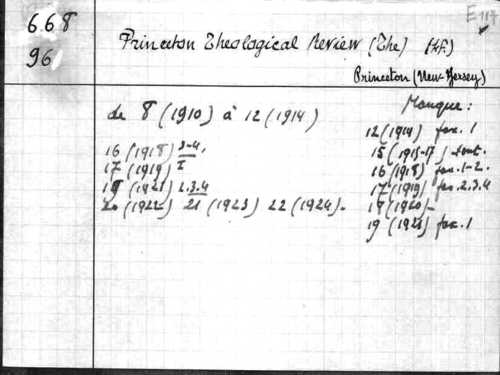 668
96
Princeton Theological Review (The)
Princeton (New-Jersey)
de 8 (1910) à 12 (1914)
16 (1918) 3-4.
17 (1919) 1
19 (1921) 2.3.4
20 (1922) 21 (1923) 22 (1924).
Manque:
12 (1914) fas. 1
15 (1915-17) tout.
16 (1918) fas. 1-2.
17 (1919) fas. 2.3.4
18 (1920) -
19 (1921) fas. 1